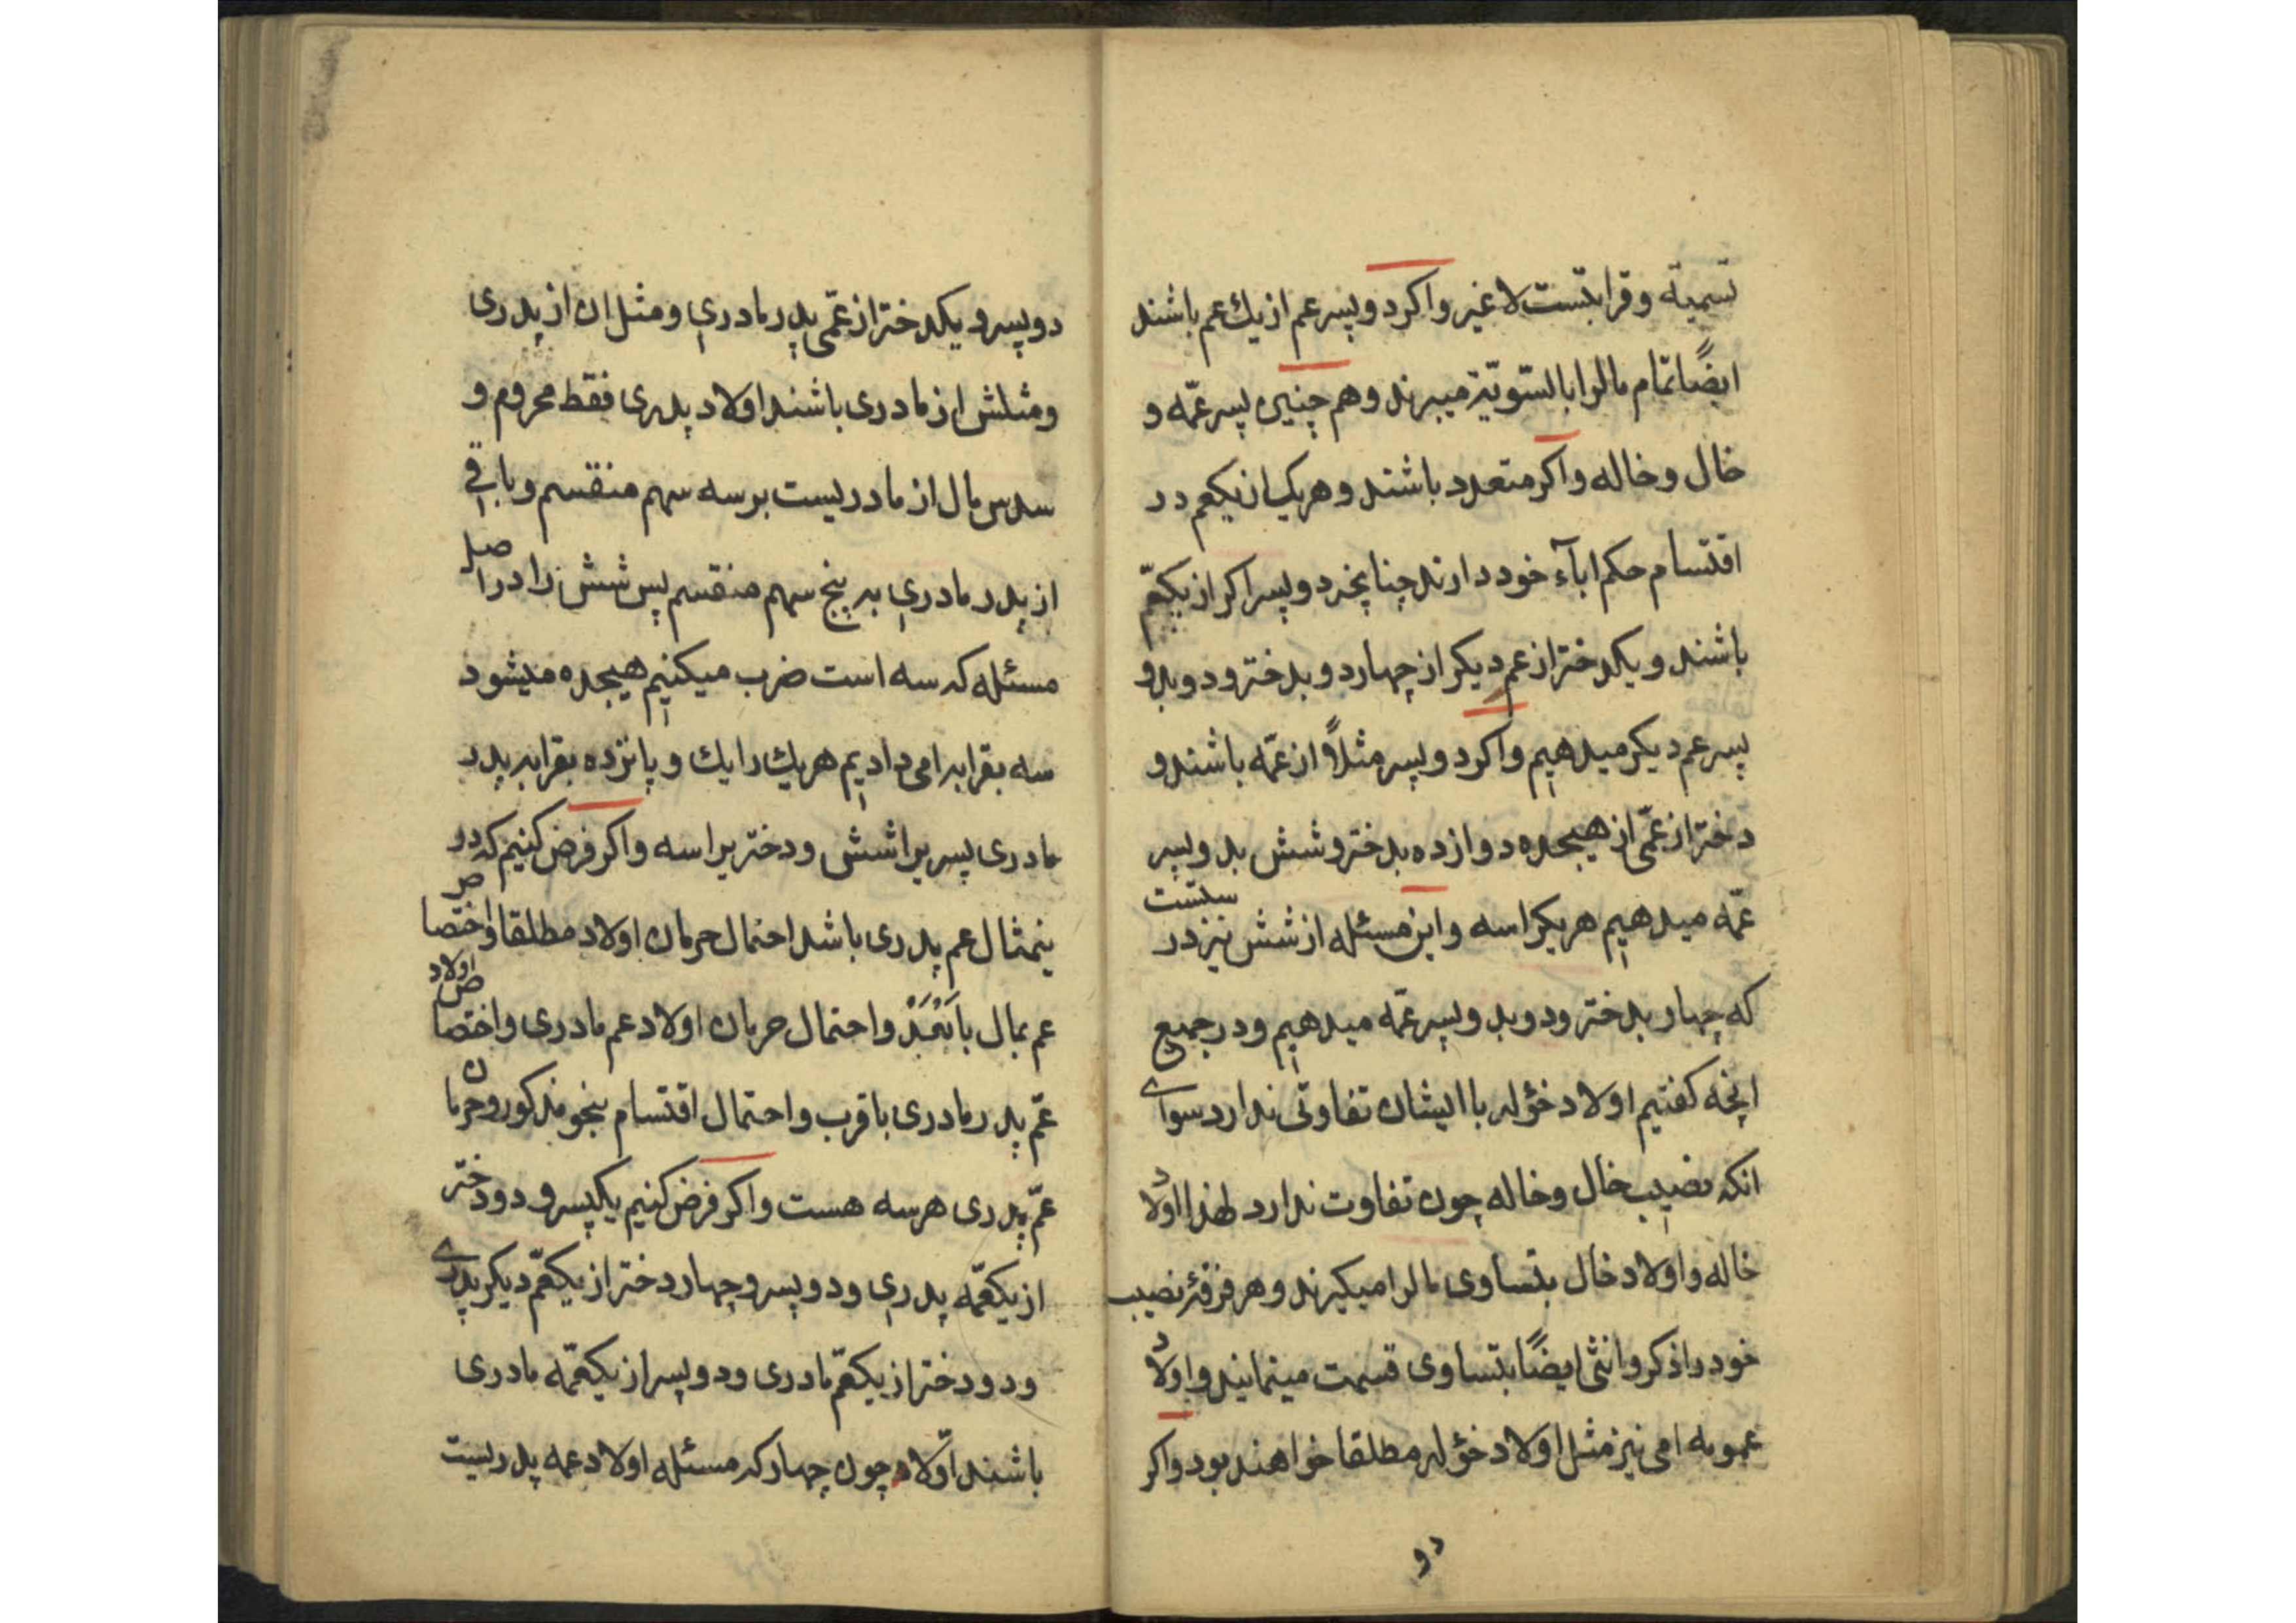 تسمیة و قرابتست لا غیر واکر دو پسر عم از یك عم باشند
ایضًا تمام مالرا بالسّویّة میبرند وهم چنین پسر عمّه و
خال و خاله واکر متعدد باشند و هر یک از یکعم در
اقتسام حکم اباۤء خود دارند چنانچه دو پسر اکر از یکعمّ
باشند و یکدختر از عم دیکر از چهار دو بدختر و دو بدو
پسر عم دیکر میدهیم واکر دو پسر مثلًا از عمّه باشند و
دختر از عمّی از هیجده دوازده بدختر و شش بدو پسر
عمّه میدهیم هریکرا سه و این مسئله از شش نیز درستست
که چهار بدختر و دو بدو پسر عمّه میدهیم و در جمیع
انچه کفتیم اولاد خؤله با ایشان تفاوتی ندارد سوای
انکه نصیب خال و خاله چون تفاوت ندارد لهذا اولاد
خاله و اولاد خال بتساوی مالرا میکیرند و هر فرقهٔ نصیب
خود را ذکر و انثی ایضًا بتساوی قسمت مینمایند و اولاد
عمومه امی نیز مثل اولاد خؤله مطلقا خواهند بود واکر
دو
دو پسر و یکدختر از عمّی پدر مادری و مثل ان از پدری
و مثلش از مادری باشند اولاد پدری فقط محروم و
سدس مال از مادریست بر سه سهم منقسم و باقی
از پدر مادری به پنج سهم منقسم پس شش را در اصل
مسئله که سه است ضرب میکنیم هیجده میشود
سه بقرابه امی دادیم هریك را یك و پانزده بقرابه پدر
مادری پسریرا شش و دختریرا سه واکر فرض کنیم که در
ینمثال عم پدری باشد احتمال حرمان اولاد مطلقا و اختصاص
عم بمال با بَعُدَ و احتمال حرمان اولاد عم مادری و اختصاص اولاد
عمّ پدر مادری با قرب و احتمال اقتسام بنحو مذکور و حرمان
عمّ پدری هر سه هست واکر فرض کنیم یکپسر و دو دختر
از یکعمّه پدری و دو پسر و چهار دختر از یکعمّ دیکر پدری
و دو دختر از یکعمّ مادری و دو پسر از یکعمّه مادری
باشند اوّلاد چون چهار که مسئله اولاد عمه پدریست